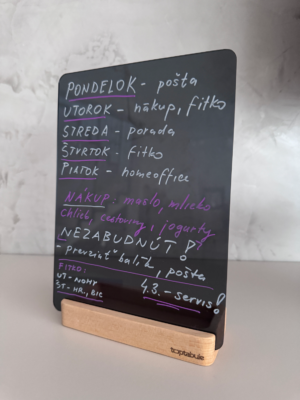 PONDELOK - pošta
UTOROK - nákup, fitko
STREDA - porada
ŠTVRTOK - fitko
PIATOK - homeoffice
NÁKUP: maslo, mlieko
chlieb, cestoviny, jogurty
NEZABUDNÚŤ!
- prevziať balík, pošta
FITKO:
UT - NOHY
ŠT - HR., BIC
4.3. - servis!
toptabule